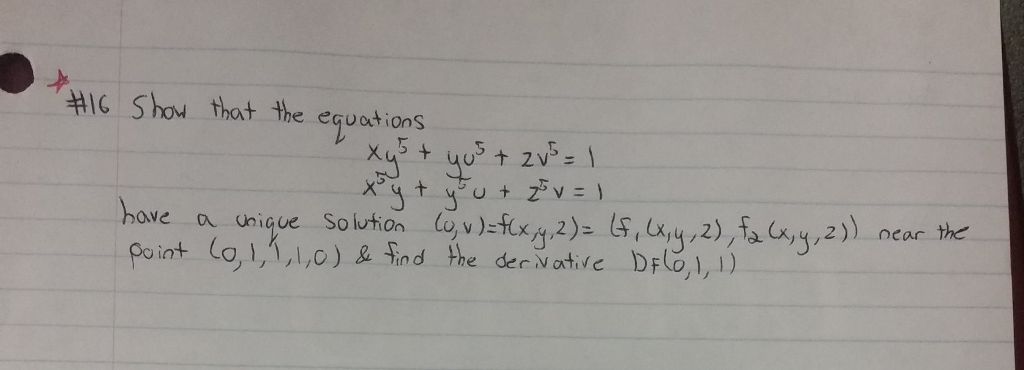 ☆
#16 Show that the equations
xy⁵ + yu⁵ + zv⁵ = 1
x⁵y + y⁵u + z⁵v = 1
have a unique solution (u,v)=f(x,y,z)= (f₁(x,y,z), f₂(x,y,z)) near the
point (0,1,1,1,0) & find the derivative Df(0,1,1)